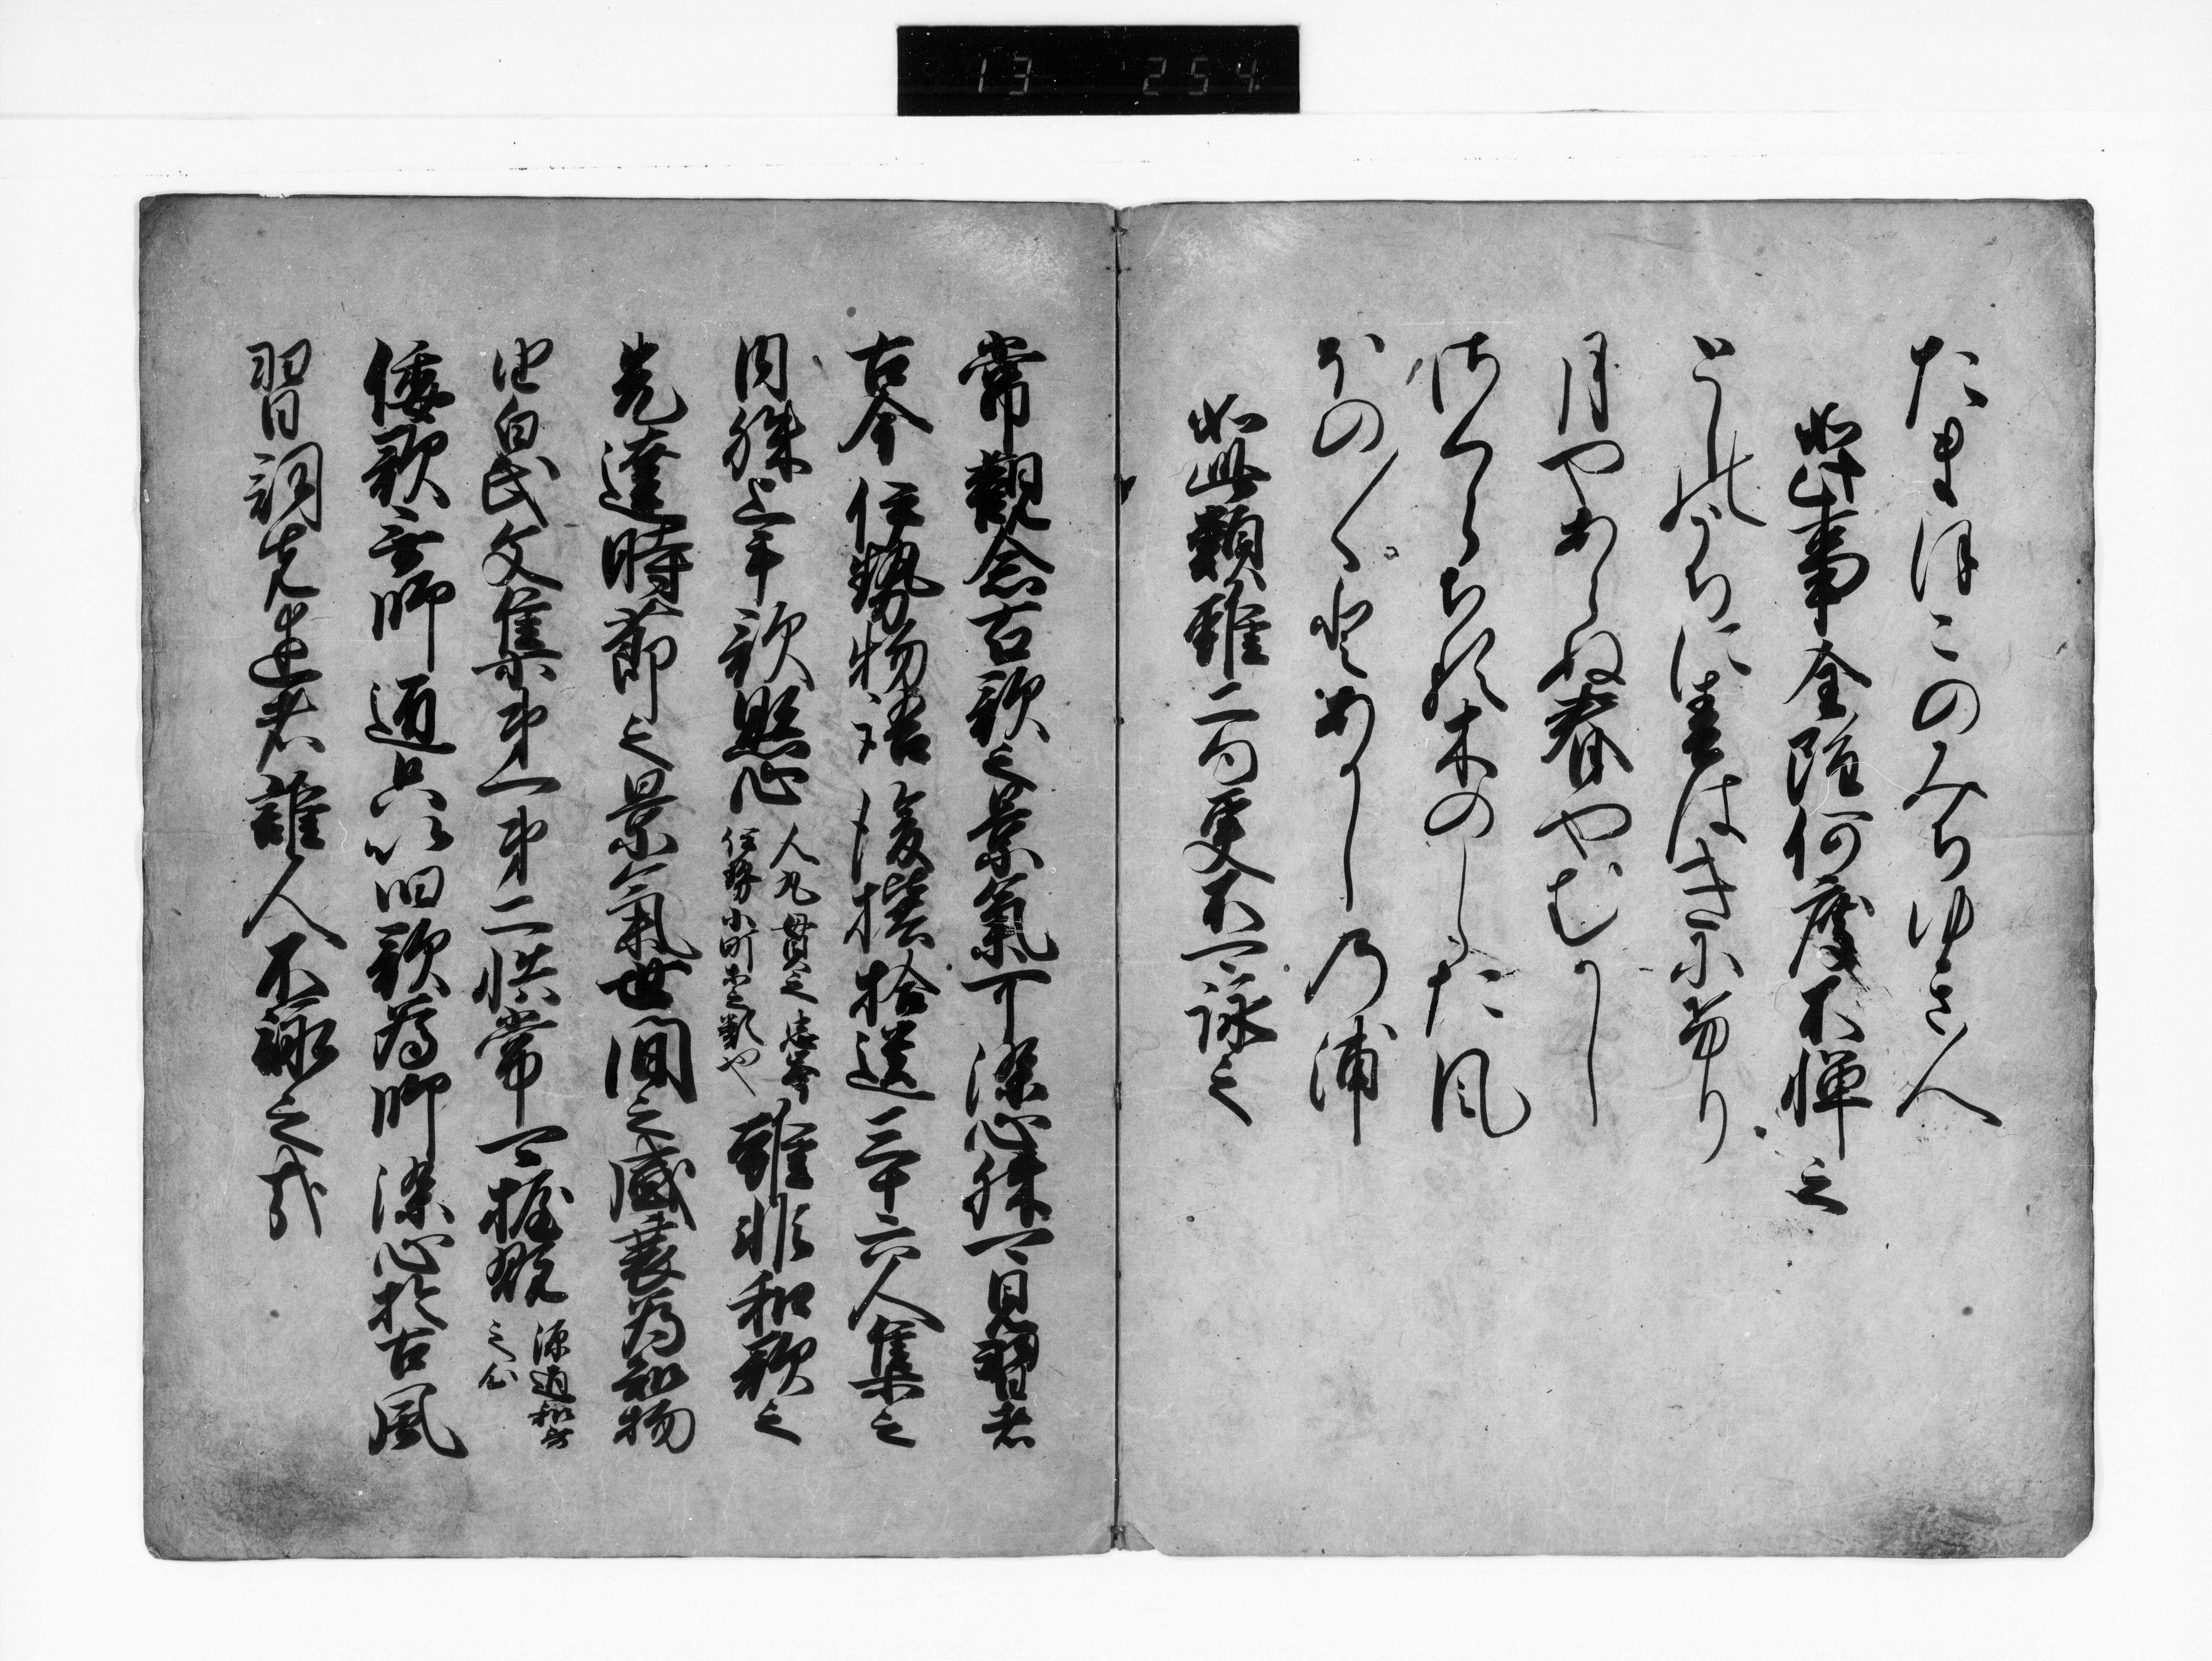 13 254
たまほこのみちゆき人
如此事全雖何度不憚之
としのうちに春はきにけり
月やあらぬ春やむかし
さくらちる木のした風
ほの〱とあかしの浦
如此類雖二句更不可詠之
常觀念古歌之景氣可染心殊可見習者
古今伊勢物語後撰拾遺三十六人集之
内殊上手歌可懸心人丸貫之忠岑
伊勢小町等之類也雖非和歌之
先達時節之景氣世間之盛衰為知物
由白氏文集第一第二帙常可握翫深通和哥
之心
倭歌無師匠只以旧歌為師染心於古風
習詞先達者誰人不詠之哉